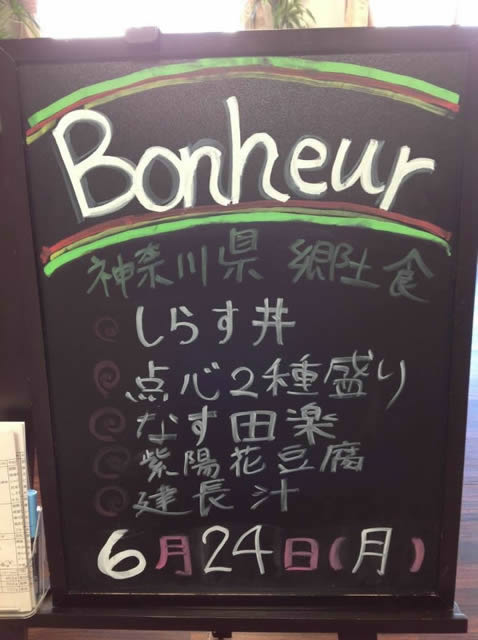 Bonheur
神奈川県 郷土食
しらす丼
点心2種盛り
なす田楽
紫陽花豆腐
建長汁
6月24日(月)